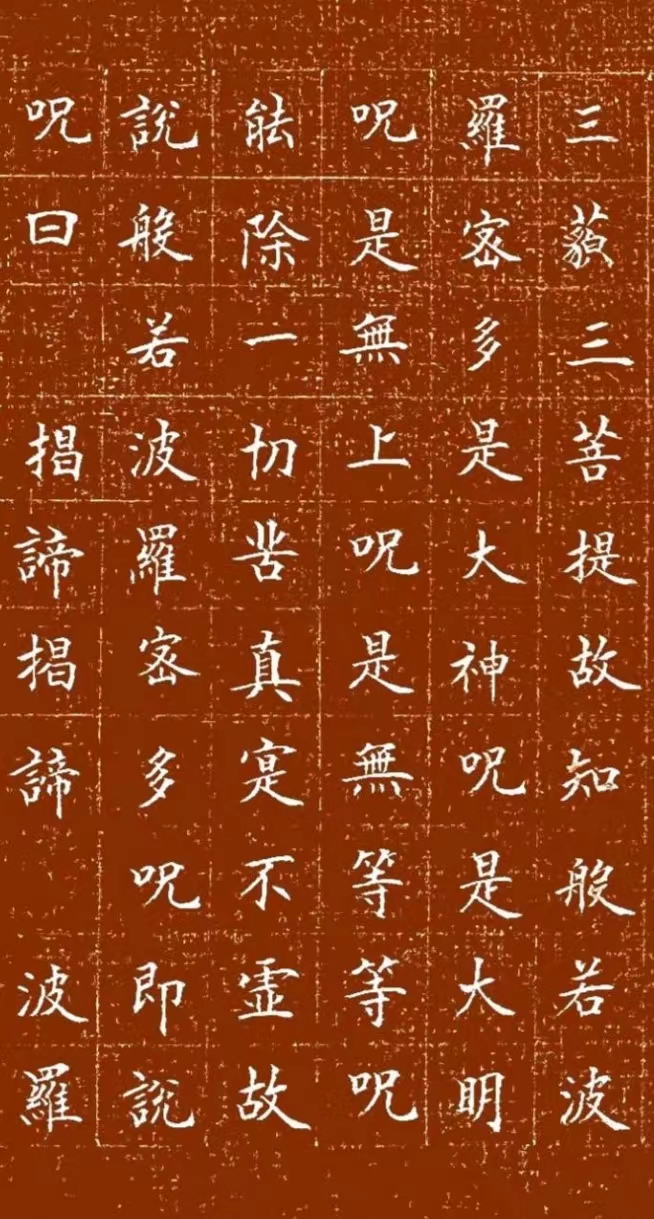 三藐三菩提故知般若波
羅蜜多是大神呪是大明
呪是無上呪是無等等呪
能除一切苦真寔不虛故
說般若波羅蜜多呪即說
呪曰 揭諦揭諦 波羅